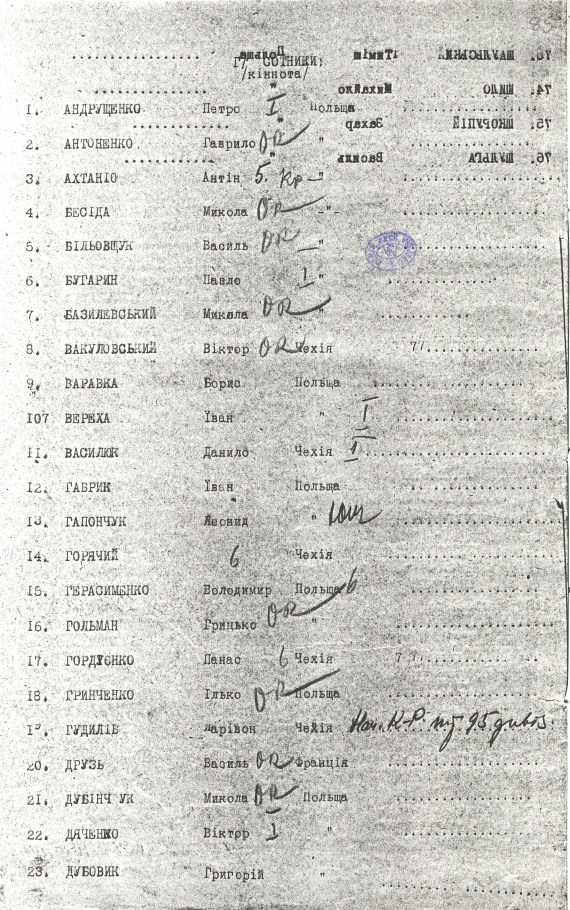 85
73. ШАУЛЬСКИЙ Тиміш Польща
Г/ СОТНИКИ:
/кіннота/
74. ШИЛО Михайло "
1. АНДРУЩЕНКО Петро I Польща
75. ШКОРУПІЙ Захар "
2. АНТОНЕНКО Гаврило OR "
76. ШУЛЬГА Василь "
3. АХТАНІО Антін 5. Кр "
4. БЕСІДА Микола OR -"-
5. БІЛЬОВЩУК Василь OR "
6. БУГАРИН Павло I "
7. БАЗИЛЕВСЬКИЙ Микола OR "
8. ВАКУЛОВСЬКИЙ Віктор OR Чехія
9. ВАРАВКА Борис Польща
107 ВЕРЕХА Іван " I
11. ВАСИЛЮК Данило Чехія I
12. ГАБРИК Іван Польща
13. ГАПОНЧУК Леонид "
14. ГОРЯЧИЙ 6 Чехія
15. ГЕРАСИМЕНКО Володимир Польща 6
16. ГОЛЬМАН Грицько OR "
17. ГОРДІЄНКО Панас 6 Чехія
18. ГРИНЧЕНКО Ілько OR Польща
19. ГУДИЛІВ Ларівон Чехія
20. ДРУЗЬ Василь OR Франція
21. ДУБІНЧ УК Микола OR Польща
22. ДЯЧЕНКО Віктор I "
23. ДУБОВИК Григорій "